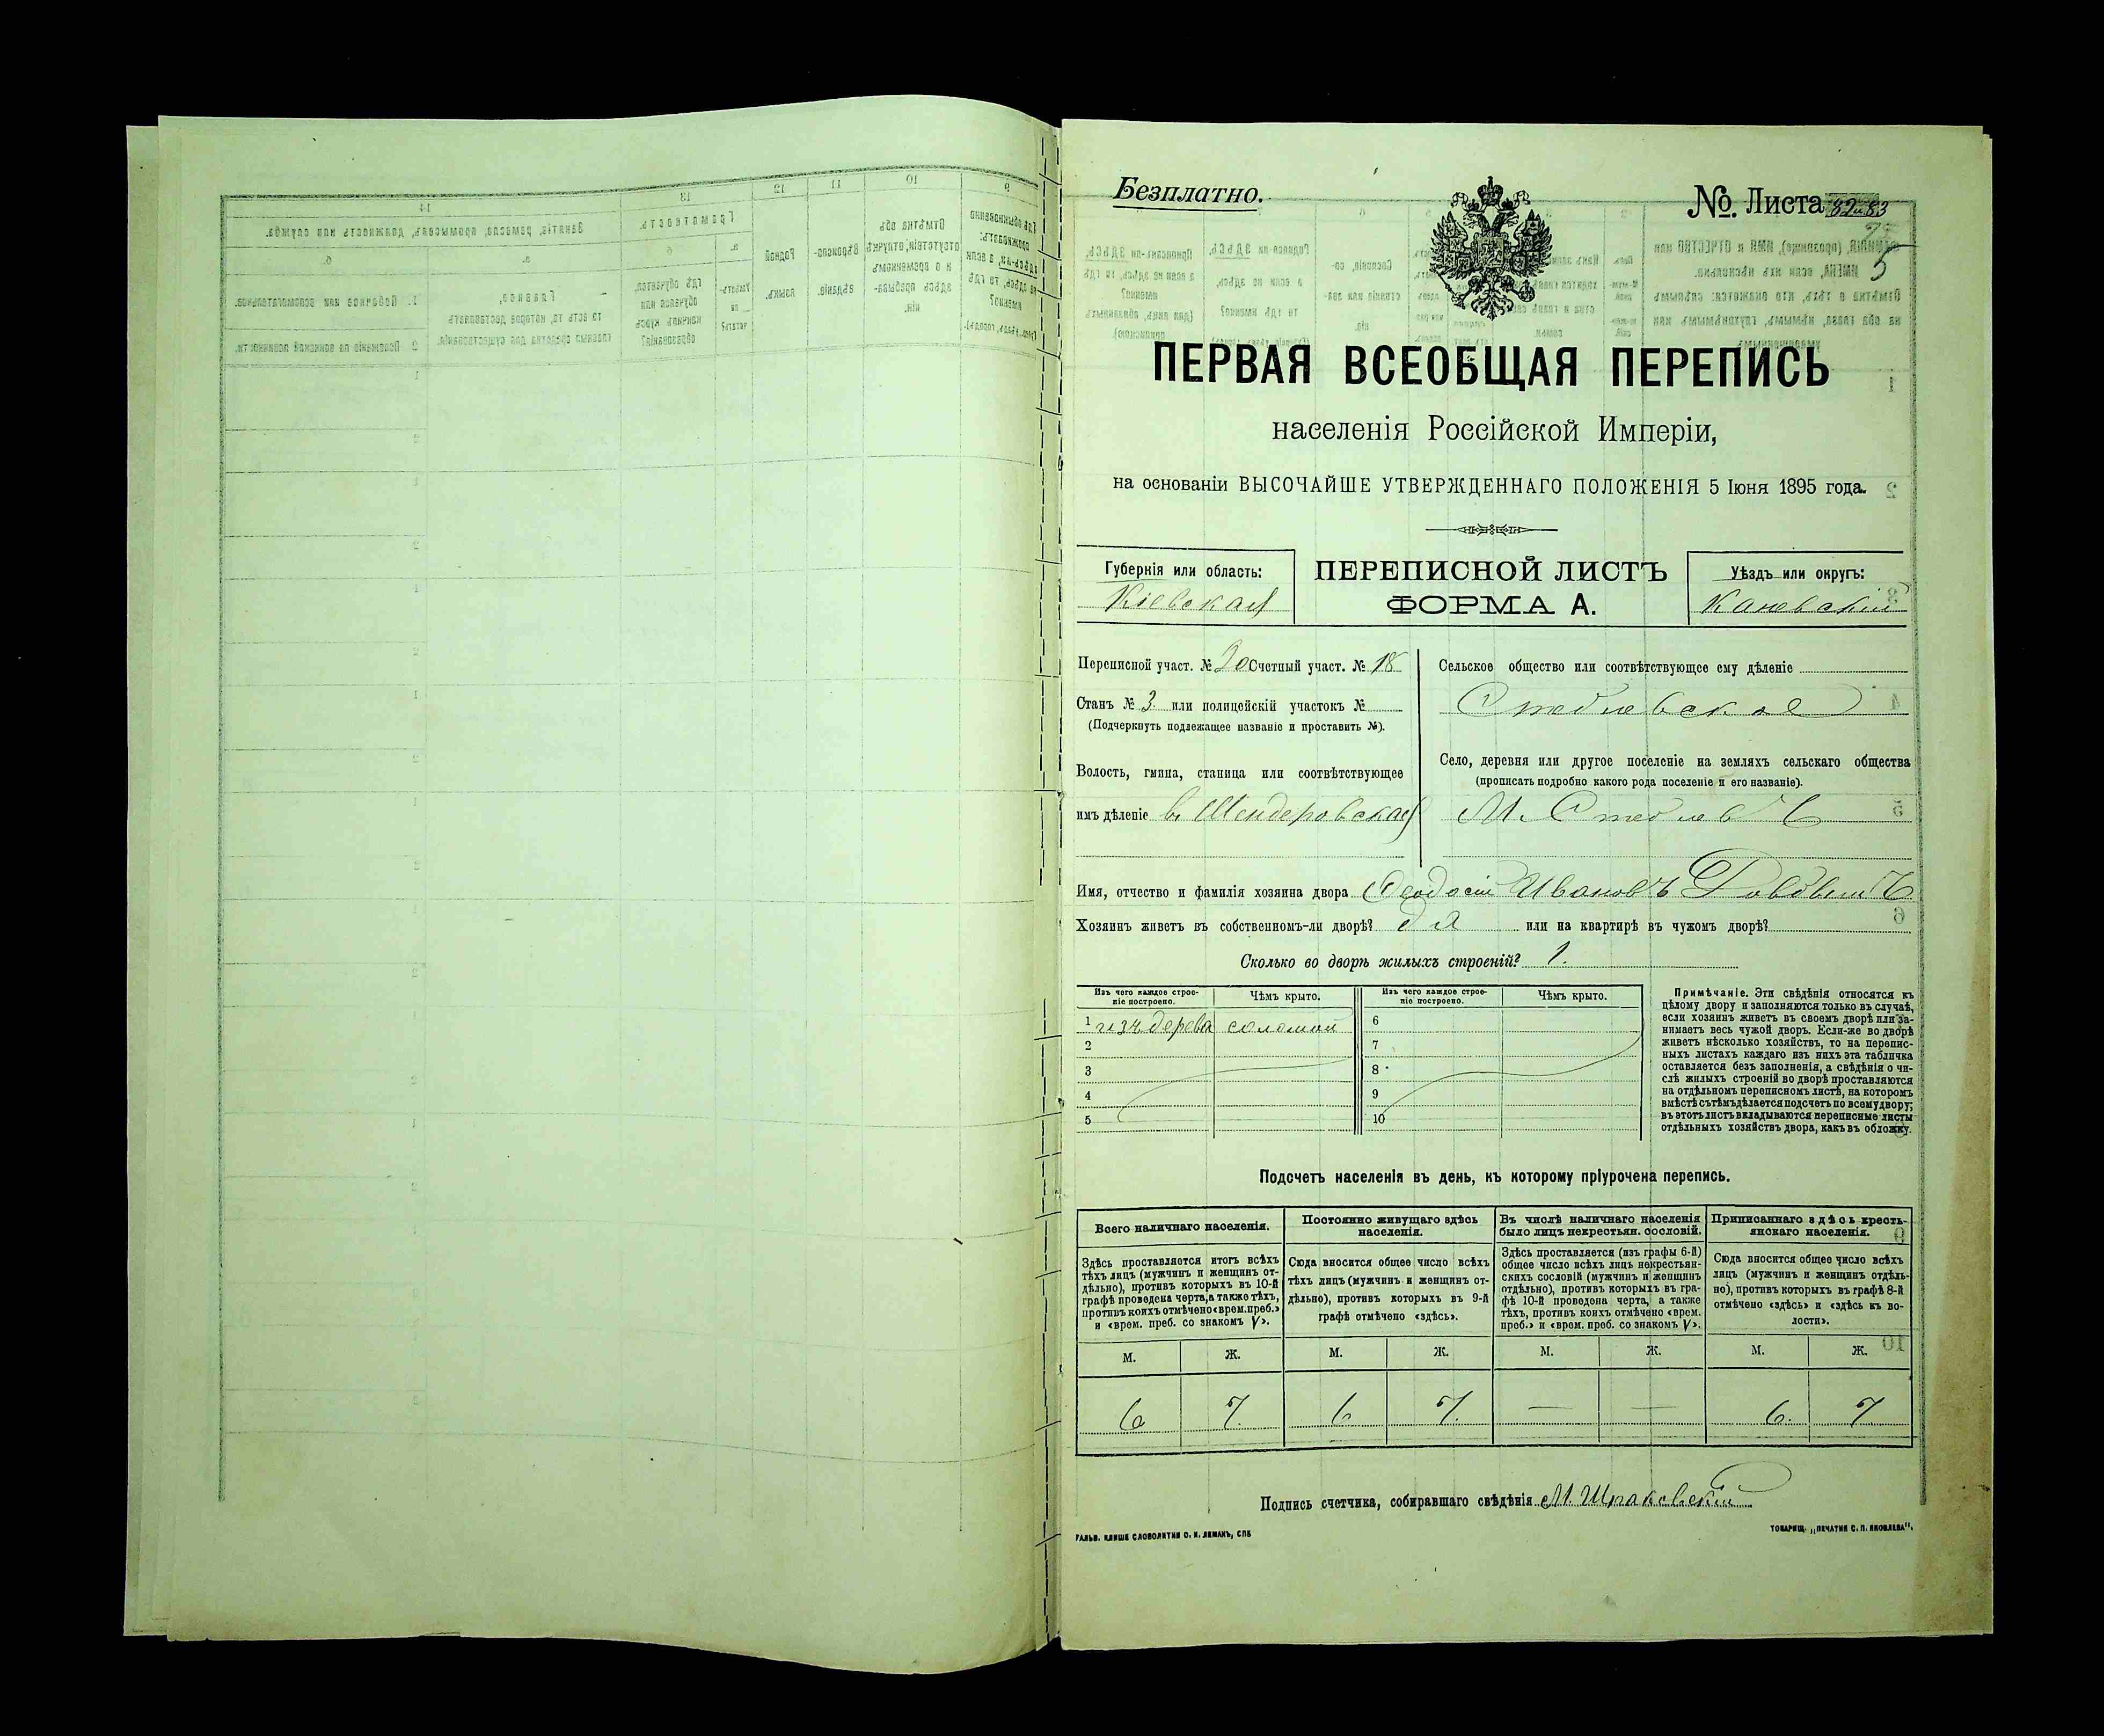 Безплатно.
№. Листа 82 и 83
5
ПЕРВАЯ ВСЕОБЩАЯ ПЕРЕПИСЬ
населенія Россійской Имперіи,
на основаніи ВЫСОЧАЙШЕ УТВЕРЖДЕННАГО ПОЛОЖЕНІЯ 5 Іюня 1895 года.
Губернія или область:
Кіевская
ПЕРЕПИСНОЙ ЛИСТЪ
ФОРМА А.
Уѣздъ или округъ:
Каневскій
Переписной участ. № 20 Счетный участ. № 18
Станъ № 3. или полицейскій участокъ №
(Подчеркнуть подлежащее названіе и проставить №).
Волость, гмина, станица или соотвѣтствующее
имъ дѣленіе в. Шендеровская
Сельское общество или соотвѣтствующее ему дѣленіе
Стеблевское
Село, деревня или другое поселеніе на земляхъ сельскаго общества
(прописать подробно какого рода поселеніе и его названіе).
М. Стеблевъ
Имя, отчество и фамилія хозяина двора Феодосій Ивановъ
Хозяинъ живетъ въ собственномъ-ли дворѣ? да или на квартирѣ въ чужомъ дворѣ?
Сколько во дворѣ жилыхъ строеній? 1.
Изъ чего каждое строеніе построено. Чѣмъ крыто. Изъ чего каждое строеніе построено. Чѣмъ крыто.
1 изъ дерева соломой 6
2 7
3 8
4 9
5 10
Примѣчаніе. Эти свѣдѣнія относятся къ
цѣлому двору и заполняются только въ случаѣ,
если хозяинъ живетъ въ своемъ дворѣ или за-
нимаетъ весь чужой дворъ. Если-же во дворѣ
живетъ нѣсколько хозяйствъ, то на перепис-
ныхъ листахъ каждаго изъ нихъ эта табличка
оставляется безъ заполненія, а свѣдѣнія о чи-
слѣ жилыхъ строеній во дворѣ проставляются
на отдѣльномъ переписномъ листѣ, на которомъ
вмѣстѣ съ тѣмъ дѣлается подсчетъ по всему двору;
въ этотъ листъ вкладываются переписные листы
отдѣльныхъ хозяйствъ двора, какъ въ обложку.
Подсчетъ населенія въ день, къ которому пріурочена перепись.
Всего наличнаго населенія.
Здѣсь проставляется итогъ всѣхъ
тѣхъ лицъ (мужчинъ и женщинъ от-
дѣльно), противъ которыхъ въ 10-й
графѣ проведена черта, а также тѣхъ,
противъ коихъ отмѣчено «врем. преб.»
и «врем. преб. со знакомъ V».
Постоянно живущаго здѣсь
населенія.
Сюда вносится общее число всѣхъ
тѣхъ лицъ (мужчинъ и женщинъ от-
дѣльно), противъ которыхъ въ 9-й
графѣ отмѣчено «здѣсь».
Въ числѣ наличнаго населенія
было лицъ некрестьян. сословій.
Здѣсь проставляется (изъ графы 6-й)
общее число всѣхъ лицъ некрестьян-
скихъ сословій (мужчинъ и женщинъ
отдѣльно), противъ которыхъ въ гра-
фѣ 10-й проведена черта, а также
тѣхъ, противъ коихъ отмѣчено «врем.
преб.» и «врем. преб. со знакомъ V».
Приписаннаго здѣсь кресть-
янскаго населенія.
Сюда вносится общее число всѣхъ
лицъ (мужчинъ и женщинъ отдѣль-
но), противъ которыхъ въ графѣ 8-й
отмѣчено «здѣсь» и «здѣсь къ во-
лости».
М. Ж. М. Ж. М. Ж. М. Ж.
6 7. 6 7. — — 6. 7
Подпись счетчика, собиравшаго свѣдѣнія
ГАЛЬВ. КЛИШЕ СЛОВОЛИТНИ О. И. ЛЕМАНЪ, СПБ
ТОВАРИЩ. „ПЕЧАТНЯ С. П. ЯКОВЛЕВА".